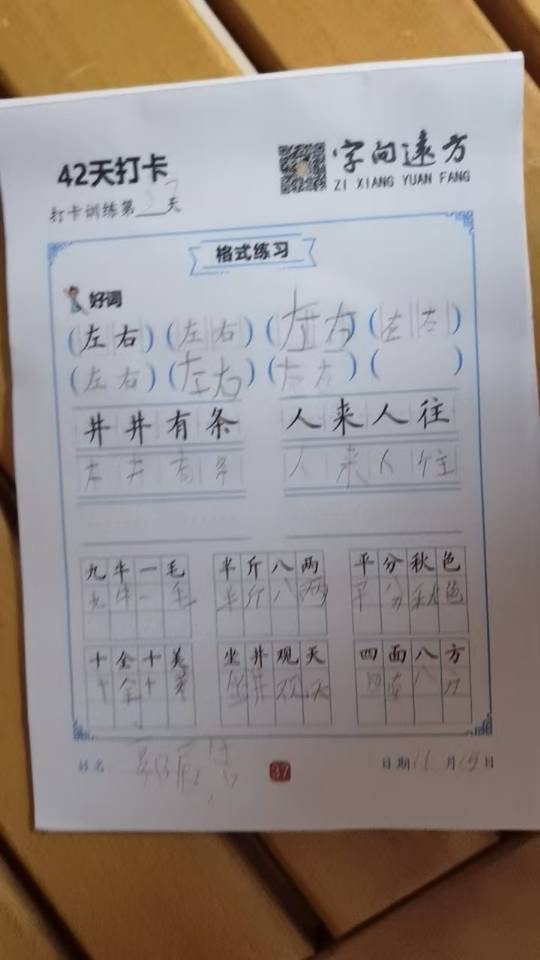 42天打卡
字向遠方
ZI XIANG YUAN FANG
打卡训练第37天
格式练习
好词
(左右)(左右)(左右)(左右)
(左右)(左右)(左右)( )
井井有条 人来人往
井井有条 人来人往
九牛一毛 半斤八两 平分秋色
九牛一毛 半斤八两 平分秋色
十全十美 坐井观天 四面八方
十全十美 坐井观天 四面八方
姓名 37 日期 月 日